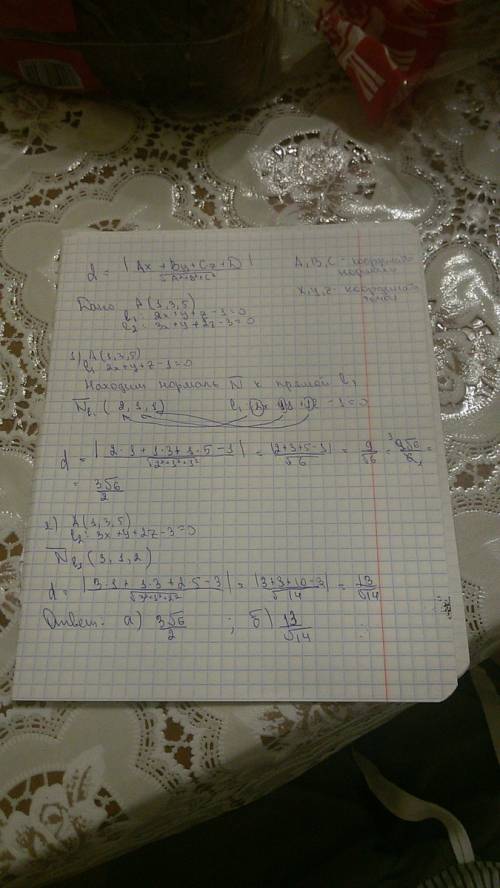 d = |Ax + By + Cz + D| / √A²+B²+C²
A, B, C - координаты
нормали
x, y, z - координаты
точки
Дано: A(1,3,5)
b₁: 2x+y+z-1=0
b₂: 3x+y+2z-3=0
1) A(1,3,5)
b₁ 2x+y+z-1=0
Находим нормаль N̅ к прямой b₁
N̅b₁ (2,1,1) b₁ 2x+1y+1z-1=0
d = |2·1+1·3+1·5-1| / √2²+1²+1² = |2+3+5-1| / √6 = 9/√6 = ³9√6/6₂ =
= 3√6/2
2) A(1,3,5)
b₂: 3x+y+2z-3=0
N̅b₂ (3,1,2)
d = |3·1+1·3+2·5-3| / √3²+1²+2² = |3+3+10-3| / √14 = 13/√14
Ответ: а) 3√6/2 ; б) 13/√14